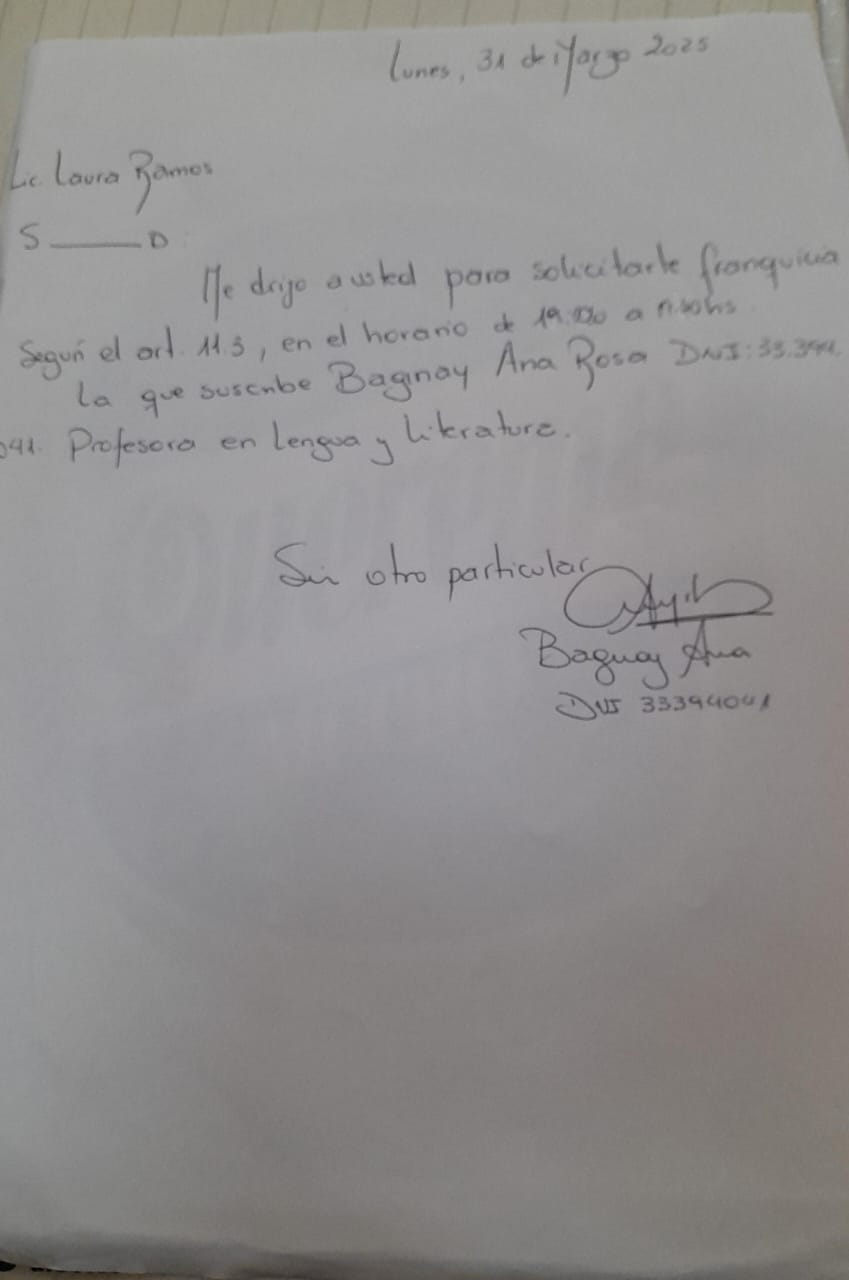 Lunes, 31 de Marzo 2025
Lic. Laura Ramos
S ——— D.
Me dirijo a usted para solicitarle franquicia
Según el art. 11.3, en el horario de a
la que suscribe Bagnay Ana Rosa DNI: 33.394.
041. Profesora en Lengua y Literatura.
Sin otro particular
Baguay Ana
DNI 33394041